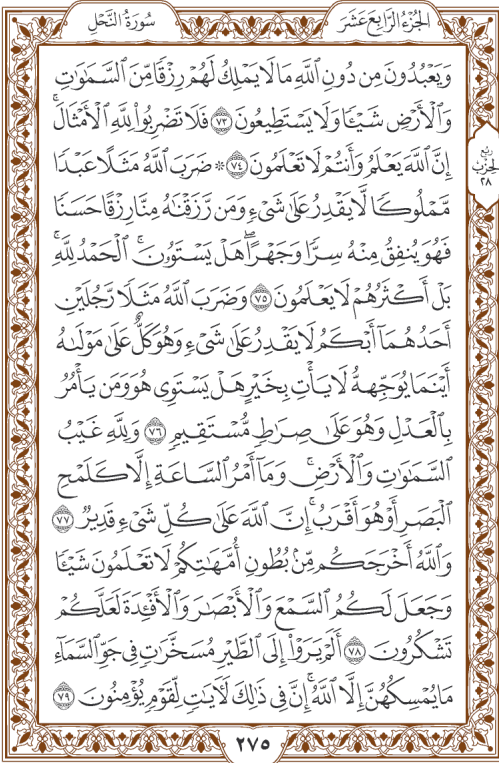 الجُزْءُ الرَّابِعَ عَشَرَ
سُورَةُ النَّحْلِ
وَيَعْبُدُونَ مِن دُونِ ٱللَّهِ مَا لَا يَمْلِكُ لَهُمْ رِزْقًا مِّنَ ٱلسَّمَٰوَٰتِ
وَٱلْأَرْضِ شَيْـًٔا وَلَا يَسْتَطِيعُونَ ٧٣ فَلَا تَضْرِبُوا۟ لِلَّهِ ٱلْأَمْثَالَ ۚ
إِنَّ ٱللَّهَ يَعْلَمُ وَأَنتُمْ لَا تَعْلَمُونَ ٧٤ ۞ ضَرَبَ ٱللَّهُ مَثَلًا عَبْدًا
مَّمْلُوكًا لَّا يَقْدِرُ عَلَىٰ شَىْءٍ وَمَن رَّزَقْنَٰهُ مِنَّا رِزْقًا حَسَنًا
فَهُوَ يُنفِقُ مِنْهُ سِرًّا وَجَهْرًا ۖ هَلْ يَسْتَوُۥنَ ۚ ٱلْحَمْدُ لِلَّهِ ۚ
بَلْ أَكْثَرُهُمْ لَا يَعْلَمُونَ ٧٥ وَضَرَبَ ٱللَّهُ مَثَلًا رَّجُلَيْنِ
أَحَدُهُمَآ أَبْكَمُ لَا يَقْدِرُ عَلَىٰ شَىْءٍ وَهُوَ كَلٌّ عَلَىٰ مَوْلَىٰهُ
أَيْنَمَا يُوَجِّههُّ لَا يَأْتِ بِخَيْرٍ هَلْ يَسْتَوِى هُوَ وَمَن يَأْمُرُ
بِٱلْعَدْلِ وَهُوَ عَلَىٰ صِرَٰطٍ مُّسْتَقِيمٍ ٧٦ وَلِلَّهِ غَيْبُ
ٱلسَّمَٰوَٰتِ وَٱلْأَرْضِ ۚ وَمَآ أَمْرُ ٱلسَّاعَةِ إِلَّا كَلَمْحِ
ٱلْبَصَرِ أَوْ هُوَ أَقْرَبُ ۚ إِنَّ ٱللَّهَ عَلَىٰ كُلِّ شَىْءٍ قَدِيرٌ ٧٧
وَٱللَّهُ أَخْرَجَكُم مِّنۢ بُطُونِ أُمَّهَٰتِكُمْ لَا تَعْلَمُونَ شَيْـًٔا
وَجَعَلَ لَكُمُ ٱلسَّمْعَ وَٱلْأَبْصَٰرَ وَٱلْأَفْـِٔدَةَ ۙ لَعَلَّكُمْ
تَشْكُرُونَ ٧٨ أَلَمْ يَرَوْا۟ إِلَى ٱلطَّيْرِ مُسَخَّرَٰتٍ فِى جَوِّ ٱلسَّمَآءِ
مَا يُمْسِكُهُنَّ إِلَّا ٱللَّهُ ۗ إِنَّ فِى ذَٰلِكَ لَءَايَٰتٍ لِّقَوْمٍ يُؤْمِنُونَ ٧٩
رُبْع
الحِزْبِ
٢٨
٢٧٥